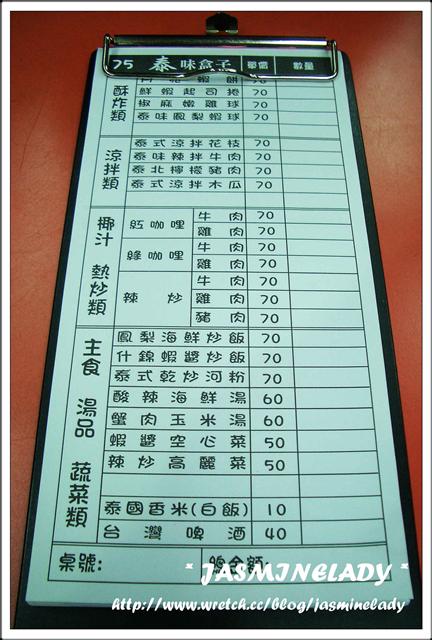 75 泰味盒子 單價 數量
蝦餅 70
酥炸類
鮮蝦起司捲 70
椒麻嫩雞球 70
泰味鳳梨蝦球 70
涼拌類
泰式涼拌花枝 70
泰味辣拌牛肉 70
泰北檸檬豬肉 70
泰式涼拌木瓜 70
椰汁 熱炒類
紅咖哩 牛肉 70
雞肉 70
綠咖哩 牛肉 70
雞肉 70
辣炒 牛肉 70
雞肉 70
豬肉 70
主食 湯品 蔬菜類
鳳梨海鮮炒飯 70
什錦蝦醬炒飯 70
泰式乾炒河粉 70
酸辣海鮮湯 60
蟹肉玉米湯 60
蝦醬空心菜 50
辣炒高麗菜 50
泰國香米(白飯) 10
台灣啤酒 40
桌號: 總金額:
* JASMINELADY *
http://www.wretch.cc/blog/jasminelady